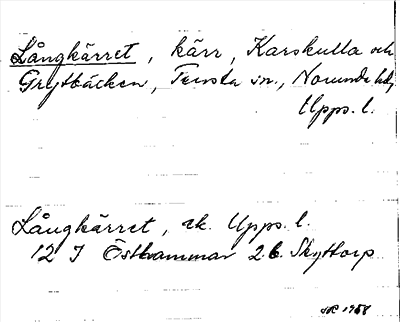 Långkärret, kärr, Karskulla och
Grytbäcken, Tensta sn., Norunda hd,
Upps. l.
Långkärret, ek. Upps. l.
12 I Östhammar 2.b. Skyttorp
1958